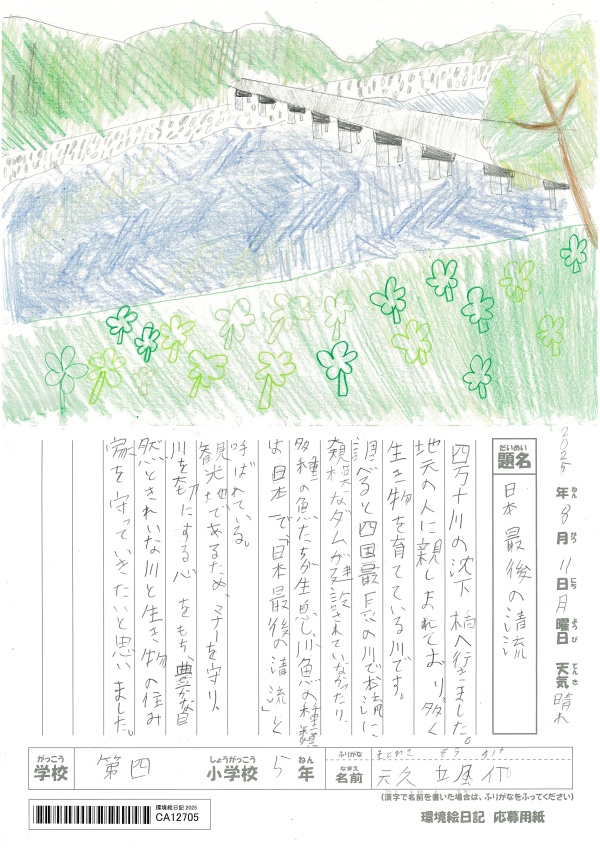 2025年8月11日月曜日 天気 晴れ
ねん がつ にち ようび てんき
だいめい
題名
日本最後の清流
四万十川の沈下橋へ行きました。
地元の人に親しまれており、多く
生き物を育てている川です。
調べると四国最長の川で本流に
大規模なダムが建設されていなかったり、
多種の魚たちが生息し、川魚の種類
は日本一で、「日本最後の清流」と
呼ばれている。
観光地であるため、マナーを守り、
川を大切にする心をもち、豊かな自
然ときれいな川と生き物の住み
家を守っていきたいと思いました。
がっこう しょうがっこう ねん
学校 第四 小学校 5年
ふりがな
なまえ
名前 元久
(漢字で名前を書いた場合は、ふりがなをふってください)
環境絵日記 2025
CA12705
環境絵日記 応募用紙